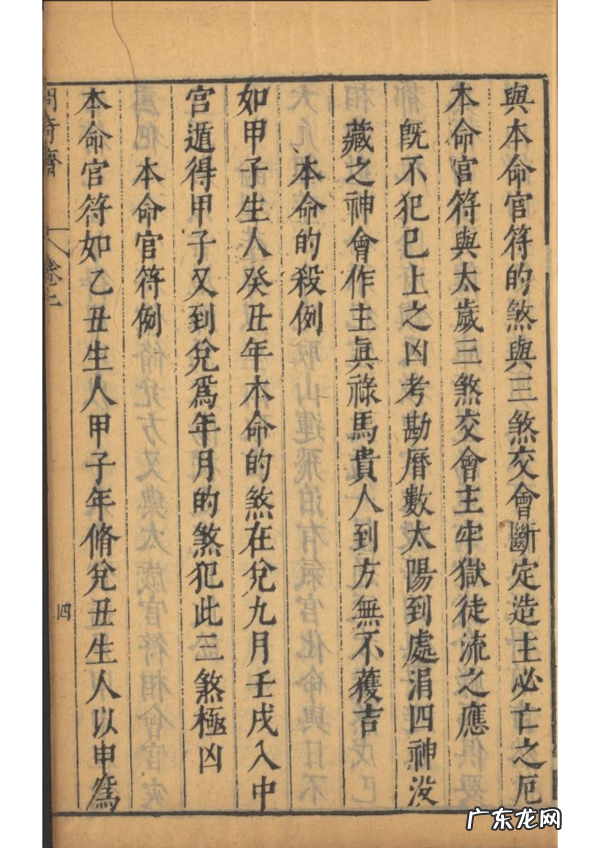 與本命官符的煞與三煞交會斷定造主必亡之厄
本命官符與太歲三煞交會主牢獄徒流之應
旣不犯巳上之凶考勘曆數太陽到處涓四神没
藏之神會作主眞祿馬貴人到方無不獲吉
本命的殺例
如甲子生人癸丑年本命的煞在兌九月壬戌入中
宮遁得甲子又到兌爲年月的煞犯此三煞極凶
本命官符例
本命官符如乙丑生人甲子年脩兌丑生人以申爲
卷二
四
广东龙网